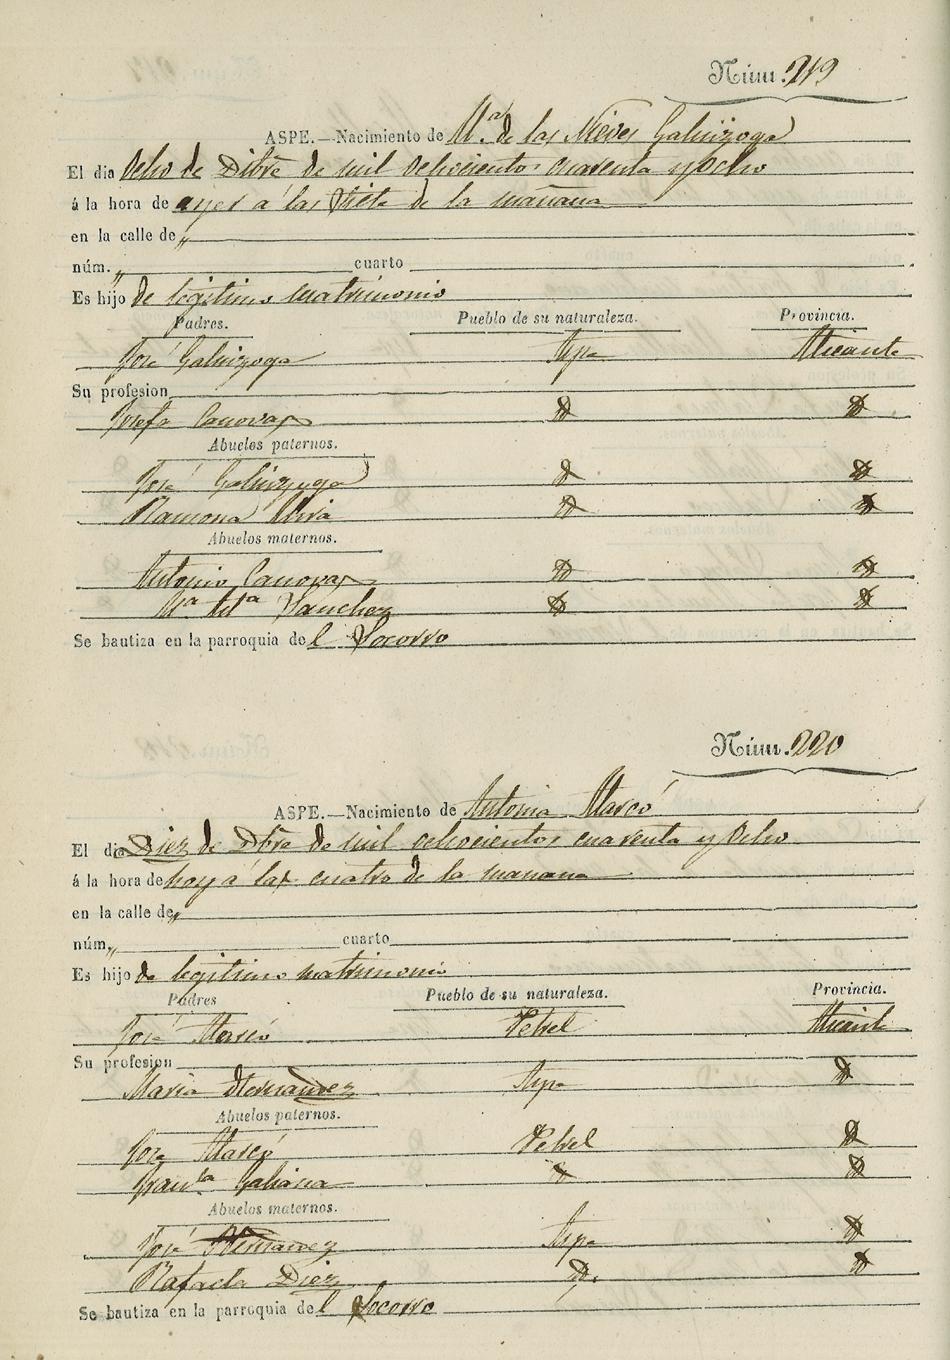 Núm. 219
ASPE.—Nacimiento de Mª de las Nieves Galvizoga
El dia Ocho de Dibre de mil ochocientos cuarenta y Ocho
á la hora de ayer á las Siete de la mañana
en la calle de „
núm. „ cuarto
Es hijo de legitimo matrimonio
Padres. Pueblo de su naturaleza. Provincia.
José Galvizoga Aspe Alicante
Su profesion
Josefa Canovas
Abuelos paternos.
José Galvizoga
Ramona
Abuelos maternos.
Antonio Canovas
Mª Sanchez
Se bautiza en la parroquia del Socorro
Núm. 220
ASPE.—Nacimiento de Antonia Marcó
El dia Diez de Dbre de mil ochocientos cuarenta y Ocho
á la hora de hoy á las cuatro de la mañana
en la calle de „
núm. „ cuarto
Es hijo de legitimo matrimonio
Padres Pueblo de su naturaleza. Provincia.
José Marcó Petrel Alicante
Su profesion
Maria Hernandez Aspe
Abuelos paternos.
José Marcó Petrel
Franca Galiana
Abuelos maternos.
José Hernandez Aspe
Rafaela Diez
Se bautiza en la parroquia del Socorro